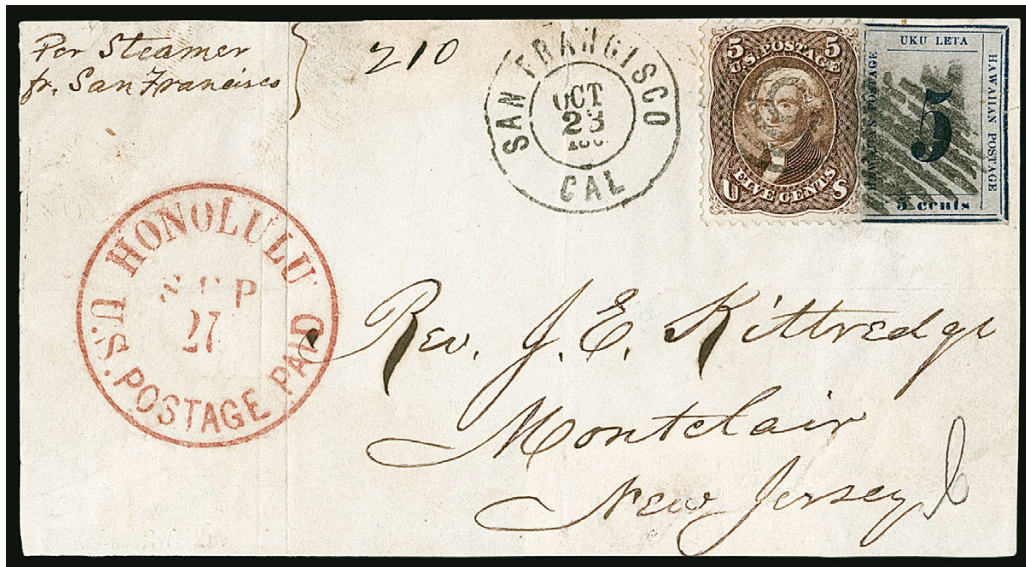 Per Steamer
fr. San Francisco
210
SAN FRANCISCO
OCT
23
CAL
5 5
U.S. POSTAGE
FIVE CENTS
U S
UKU LETA
HAWAIIAN POSTAGE
5
5 cents
HONOLULU
SEP
27
U.S. POSTAGE PAID
Rev. J. E. Kittredge
Montclair
New Jersey